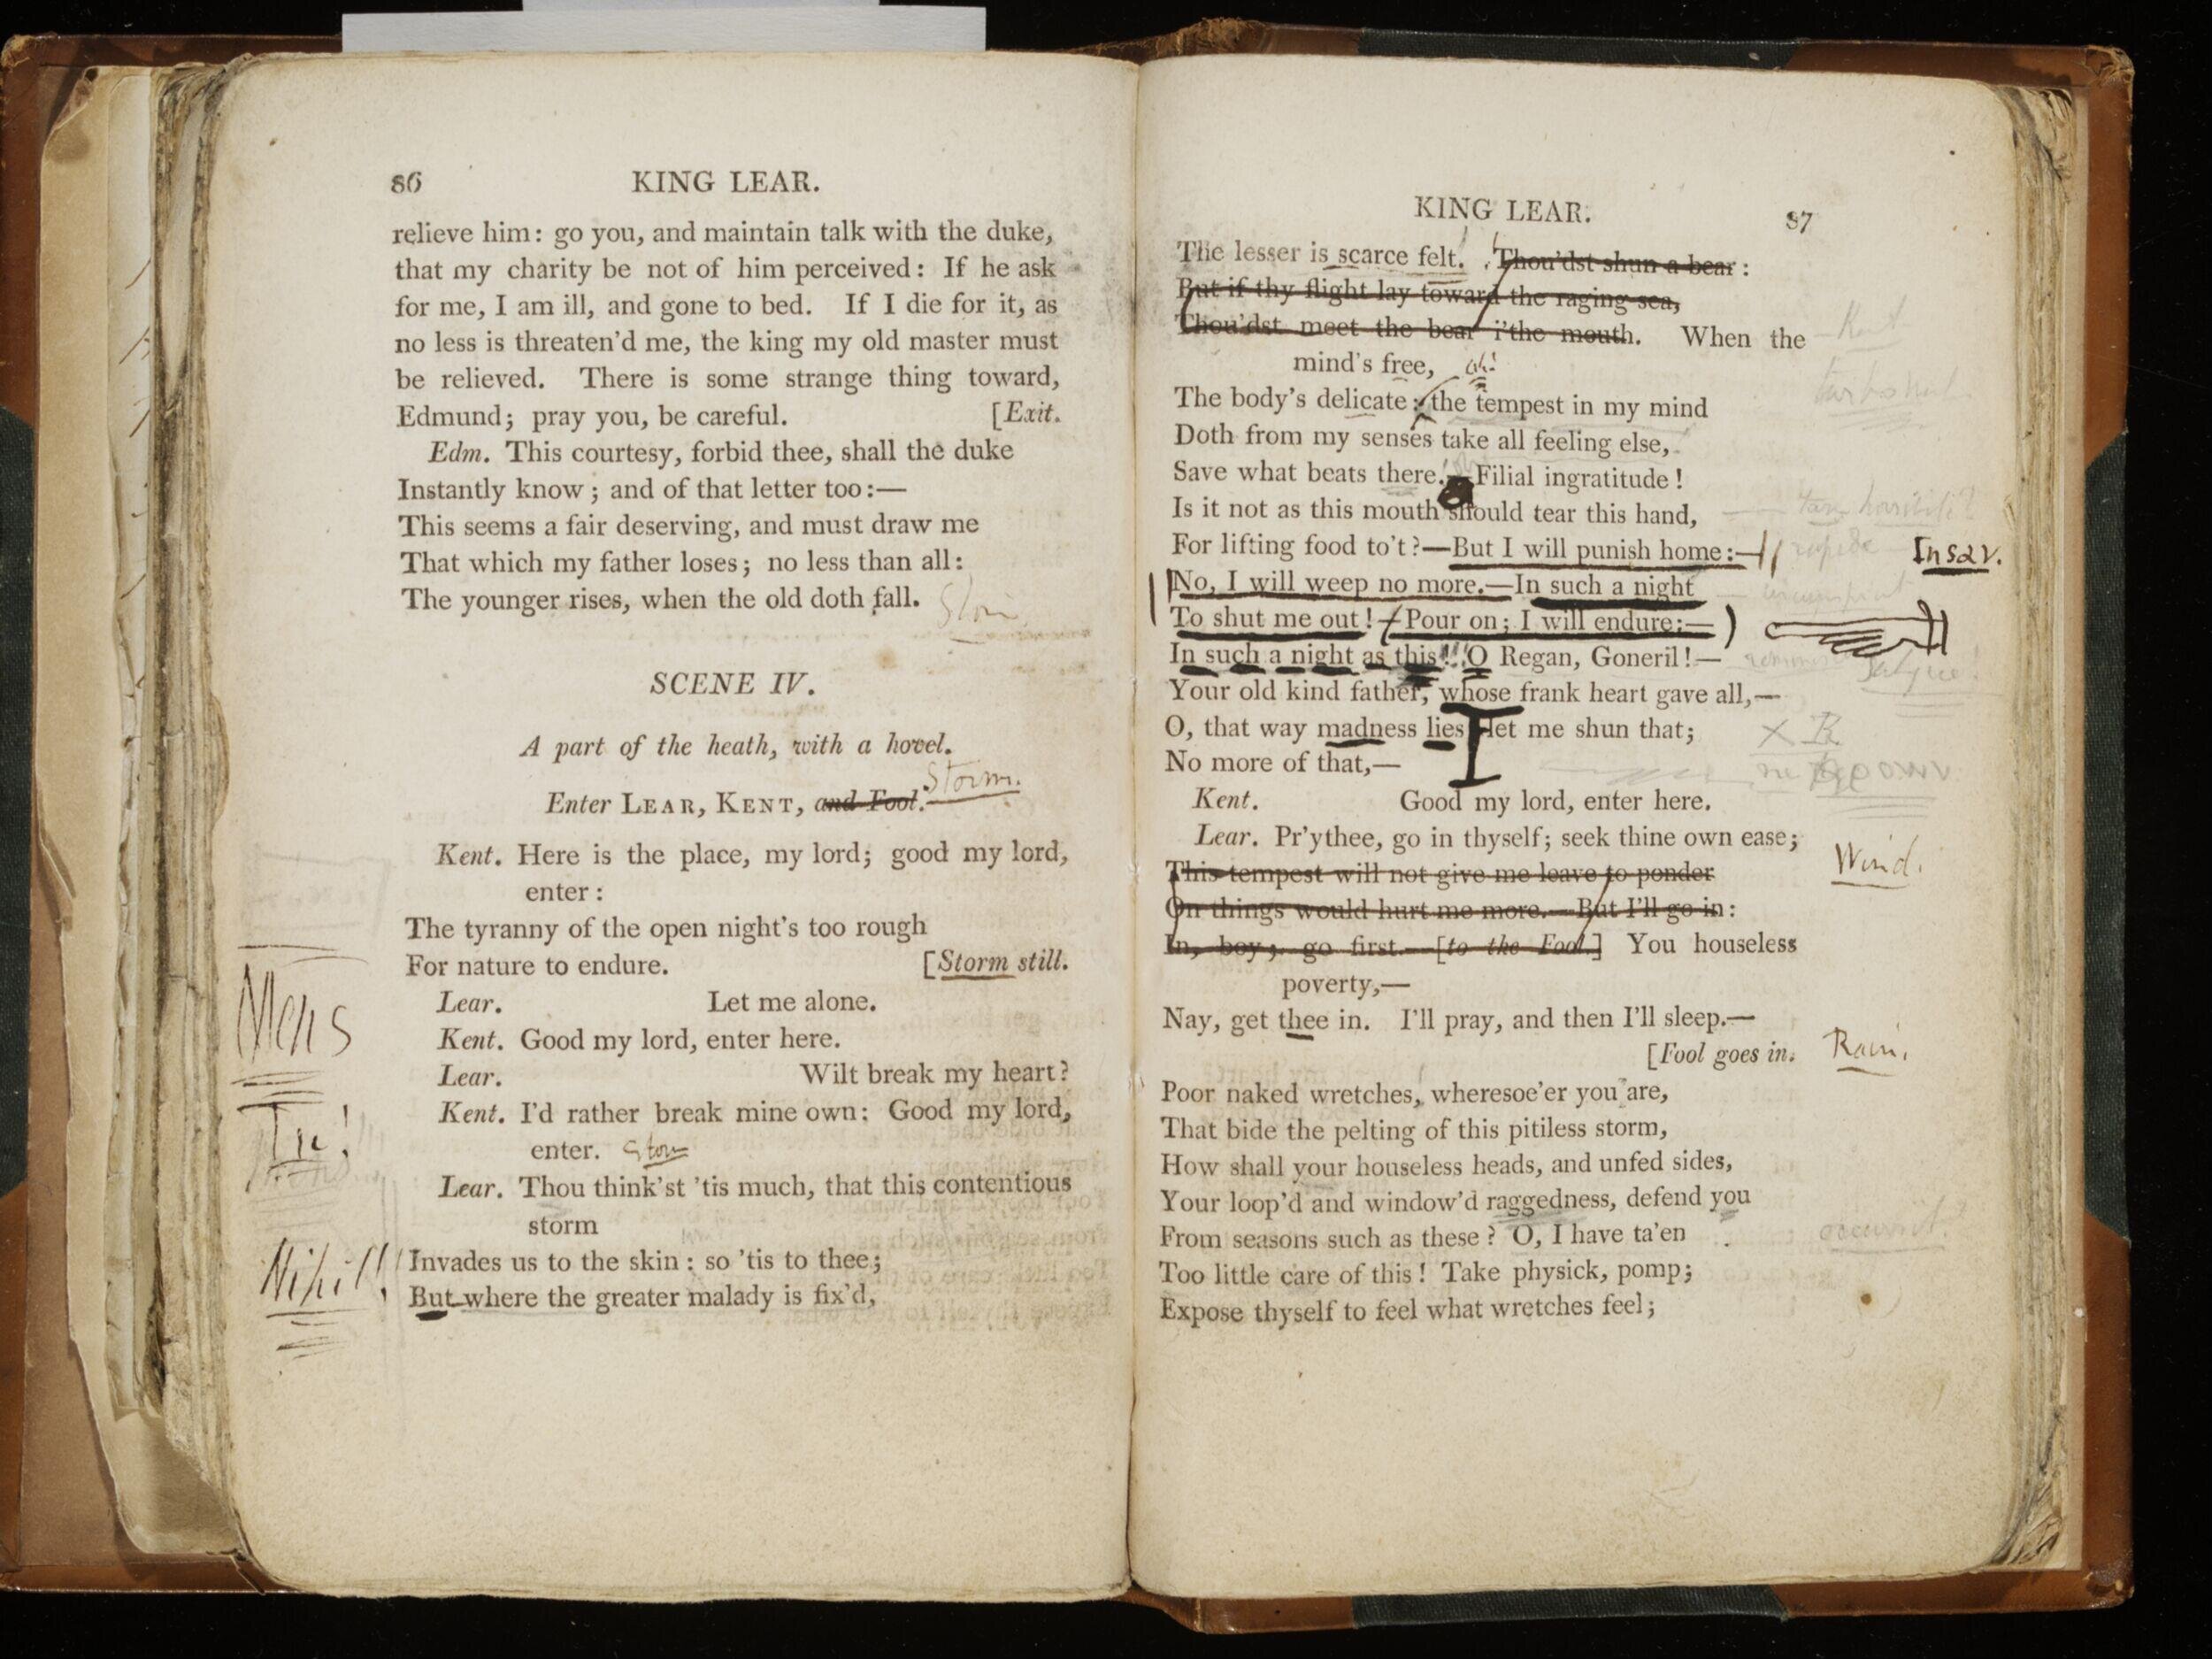 86 KING LEAR.
relieve him: go you, and maintain talk with the duke,
that my charity be not of him perceived: If he ask
for me, I am ill, and gone to bed. If I die for it, as
no less is threaten'd me, the king my old master must
be relieved. There is some strange thing toward,
Edmund; pray you, be careful. [Exit.
Edm. This courtesy, forbid thee, shall the duke
Instantly know; and of that letter too:—
This seems a fair deserving, and must draw me
That which my father loses; no less than all:
The younger rises, when the old doth fall.
SCENE IV.
A part of the heath, with a hovel.
Storm.
Enter LEAR, KENT, and Fool.
Kent. Here is the place, my lord; good my lord,
enter:
The tyranny of the open night's too rough
For nature to endure. [Storm still.
Mens
Lear. Let me alone.
Kent. Good my lord, enter here.
Lear. Wilt break my heart?
Kent. I'd rather break mine own: Good my lord,
enter. Storm
Lear. Thou think'st 'tis much, that this contentious
storm
Invades us to the skin: so 'tis to thee;
Nihil!
But where the greater malady is fix'd,
KING LEAR. 87
The lesser is scarce felt. Thou'dst shun a bear:
But if thy flight lay toward the raging sea,
Thou'dst meet the bear i'the mouth. When the
mind's free, oh!
The body's delicate: the tempest in my mind
Doth from my senses take all feeling else,
Save what beats there.—Filial ingratitude!
Is it not as this mouth should tear this hand,
For lifting food to't?—But I will punish home:—
No, I will weep no more.—In such a night
To shut me out!—Pour on; I will endure:—
In such a night as this! O Regan, Goneril!—
Your old kind father, whose frank heart gave all,—
O, that way madness lies; let me shun that;
No more of that,—
Kent. Good my lord, enter here.
Lear. Pr'ythee, go in thyself; seek thine own ease;
Wind.
This tempest will not give me leave to ponder
On things would hurt me more.—But I'll go in:
In, boy; go first.—[to the Fool.] You houseless
poverty,—
Nay, get thee in. I'll pray, and then I'll sleep.—
[Fool goes in. Rain.
Poor naked wretches, wheresoe'er you are,
That bide the pelting of this pitiless storm,
How shall your houseless heads, and unfed sides,
Your loop'd and window'd raggedness, defend you
From seasons such as these? O, I have ta'en
Too little care of this! Take physick, pomp;
Expose thyself to feel what wretches feel;